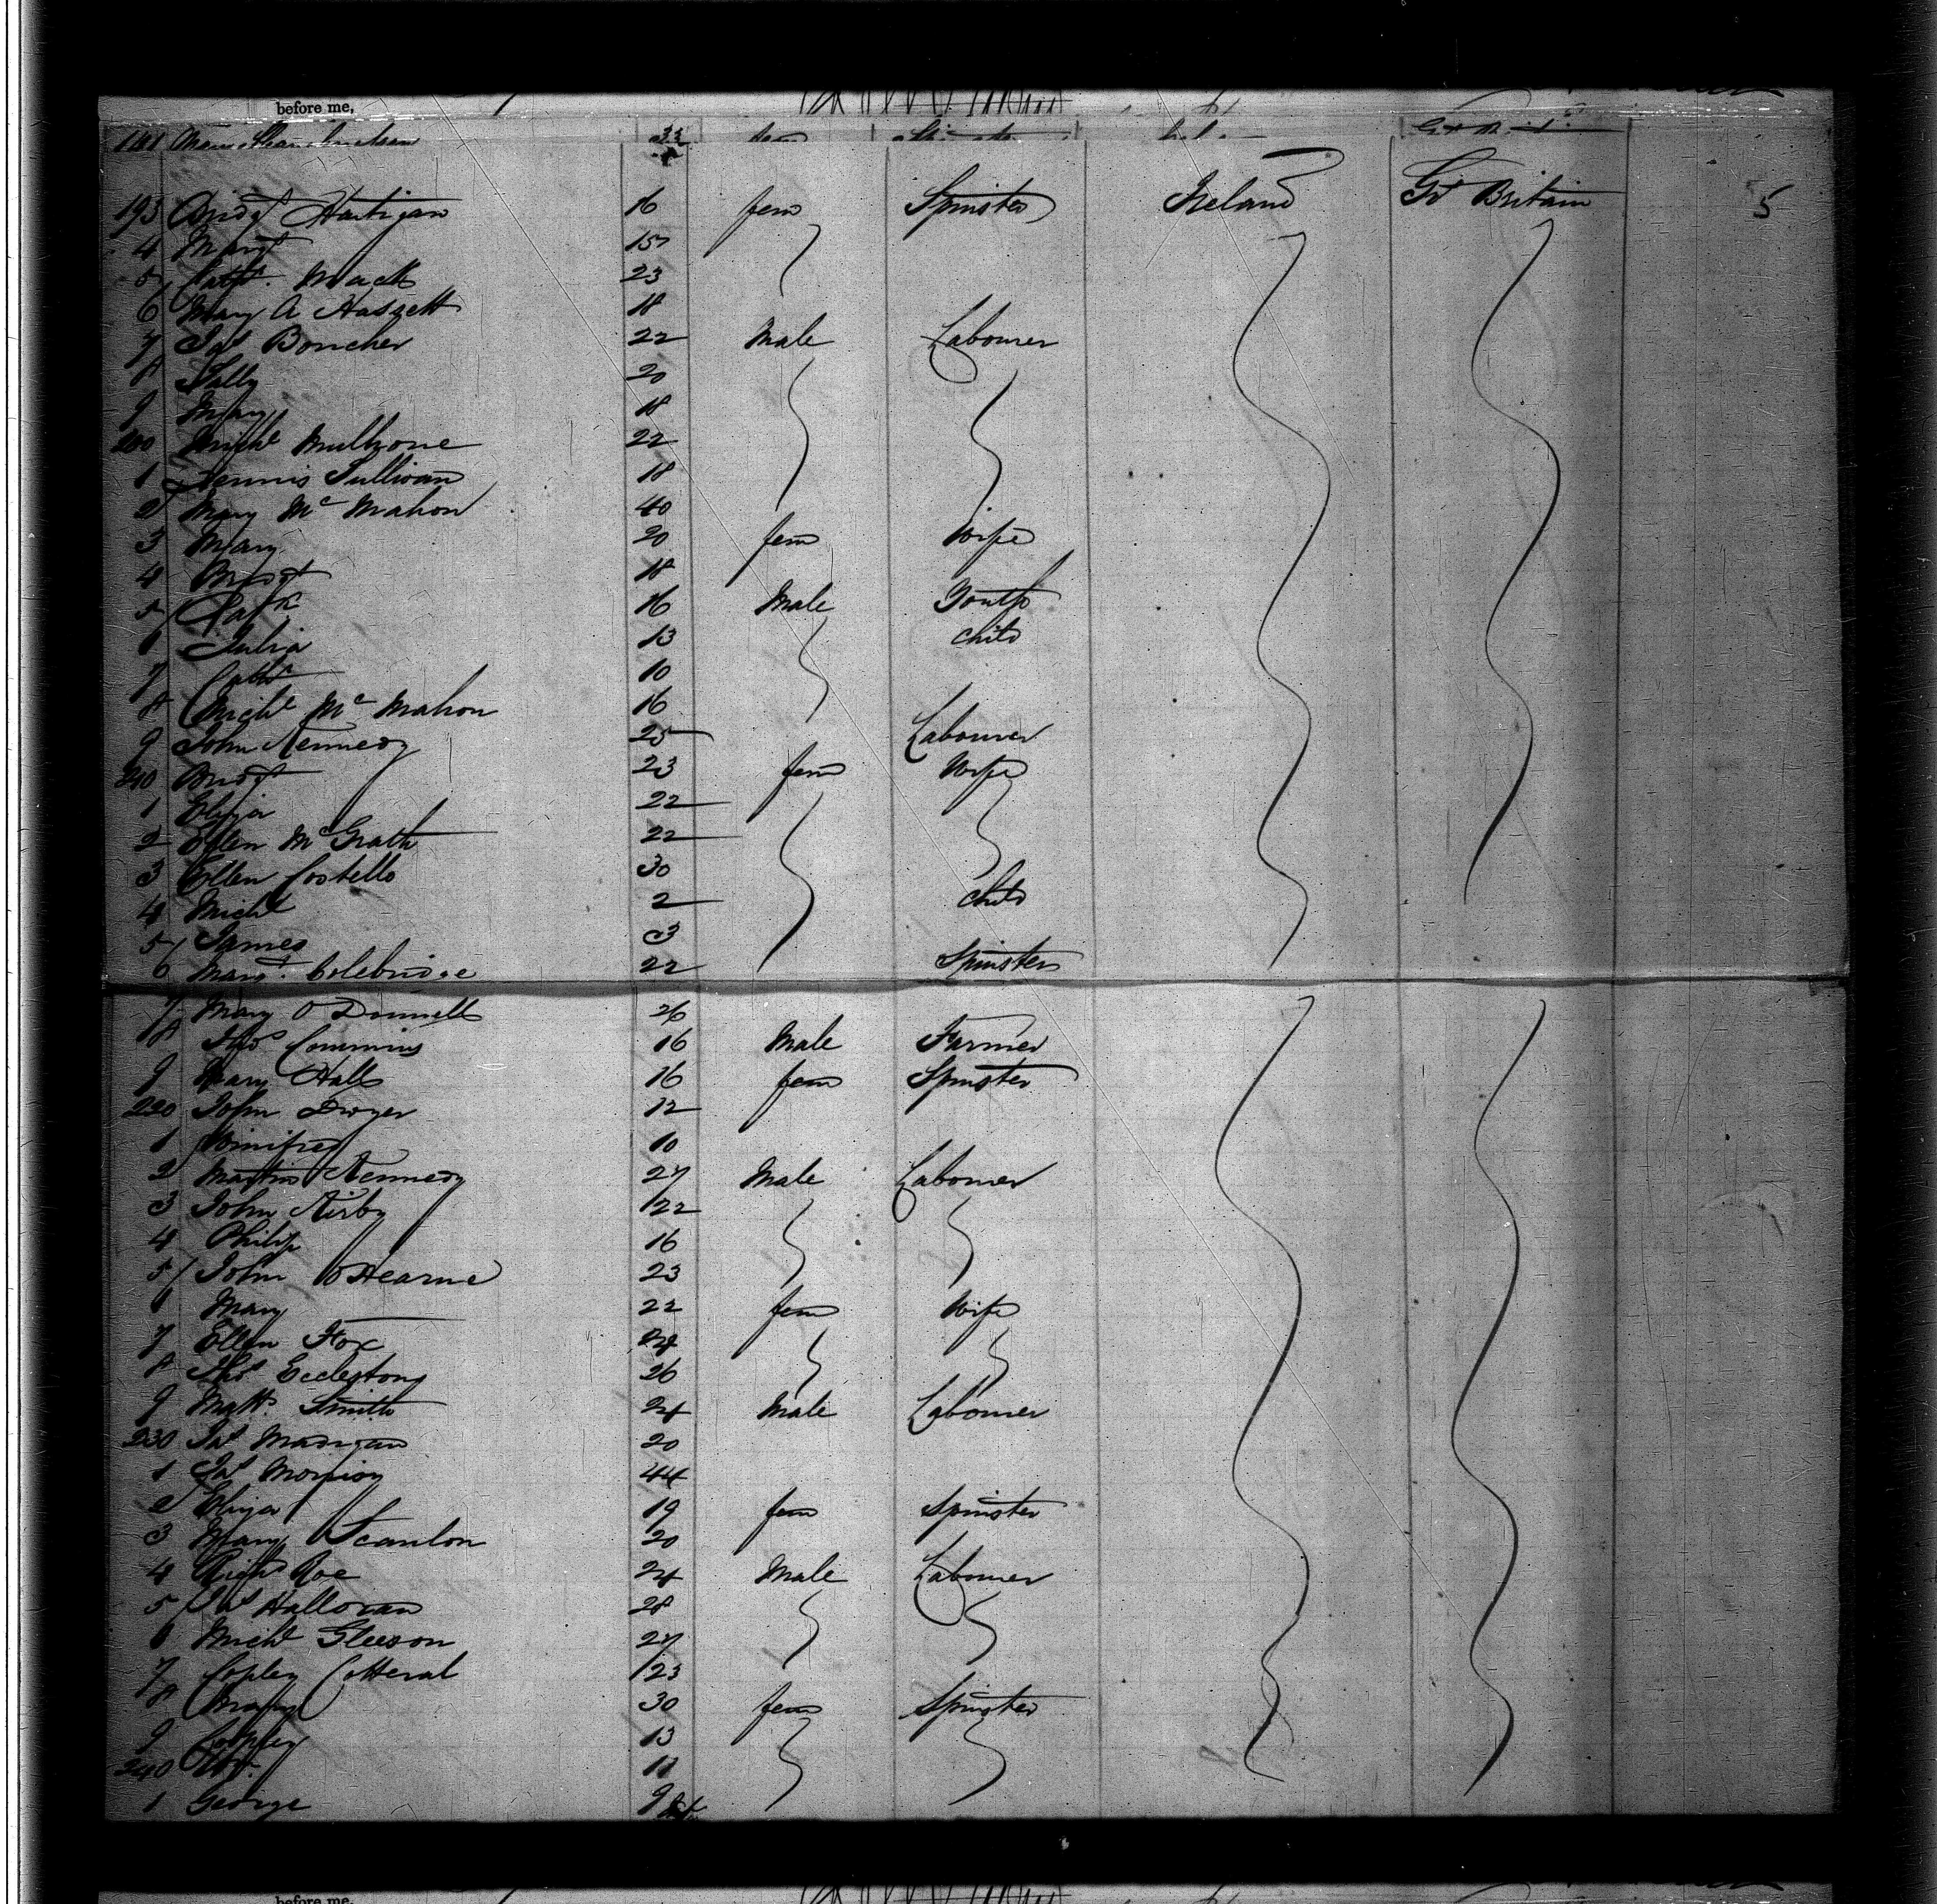 before me,
181
193 Bridgt Hartigan 16 fem Spinster Ireland Gt Britain 5
4 Margt 15
5 Cathe. Mack 23
6 Mary A Hassett 18
7 Jas Boucher 22 Male Labourer
8 Sally 20
9 Mary 18
200 Michl 22
1 Dennis Sullivan 18
2 Mary Mc Mahon 40
3 Mary 20 fem Wife
4 Bridgt 18
5 Patk 16 Male Youth
6 Julia 13 child
7 Cathe 10
8 Michl Mc Mahon 16
9 John Kennedy 25 Labourer
210 Bridgt 23 fem Wife
1 Eliza 22
2 Ellen McGrath 22
3 Ellen Costello 30
4 Michl 2 child
5 James 3
6 Margt. Colebridge 22 Spinster
7 Mary O Donnell 26
8 Thos Commins 16 Male Farmer
9 Mary Hall 16 fem Spinster
220 John Dwyer 12
1 Winifred 10
2 Martin Kennedy 27 Male Labourer
3 John Kirby 22
4 Philip 16
5 John OHearne 23
6 Mary 22 fem Wife
7 Ellen Fox 24
8 Thos Ecclestone 26
9 Matt. Smith 24 Male Labourer
230 Jas Madigan 20
1 44
2 Eliza 19 fem Spinster
3 Mary Scanlon 20
4 Richd Roe 24 Male Labourer
5 Halloran 28
6 Michl Gleeson 27
7 Copley Cotteral 23
8 Mary 30 fem Spinster
9 Copley 13
240 11
1 George 9
before me,